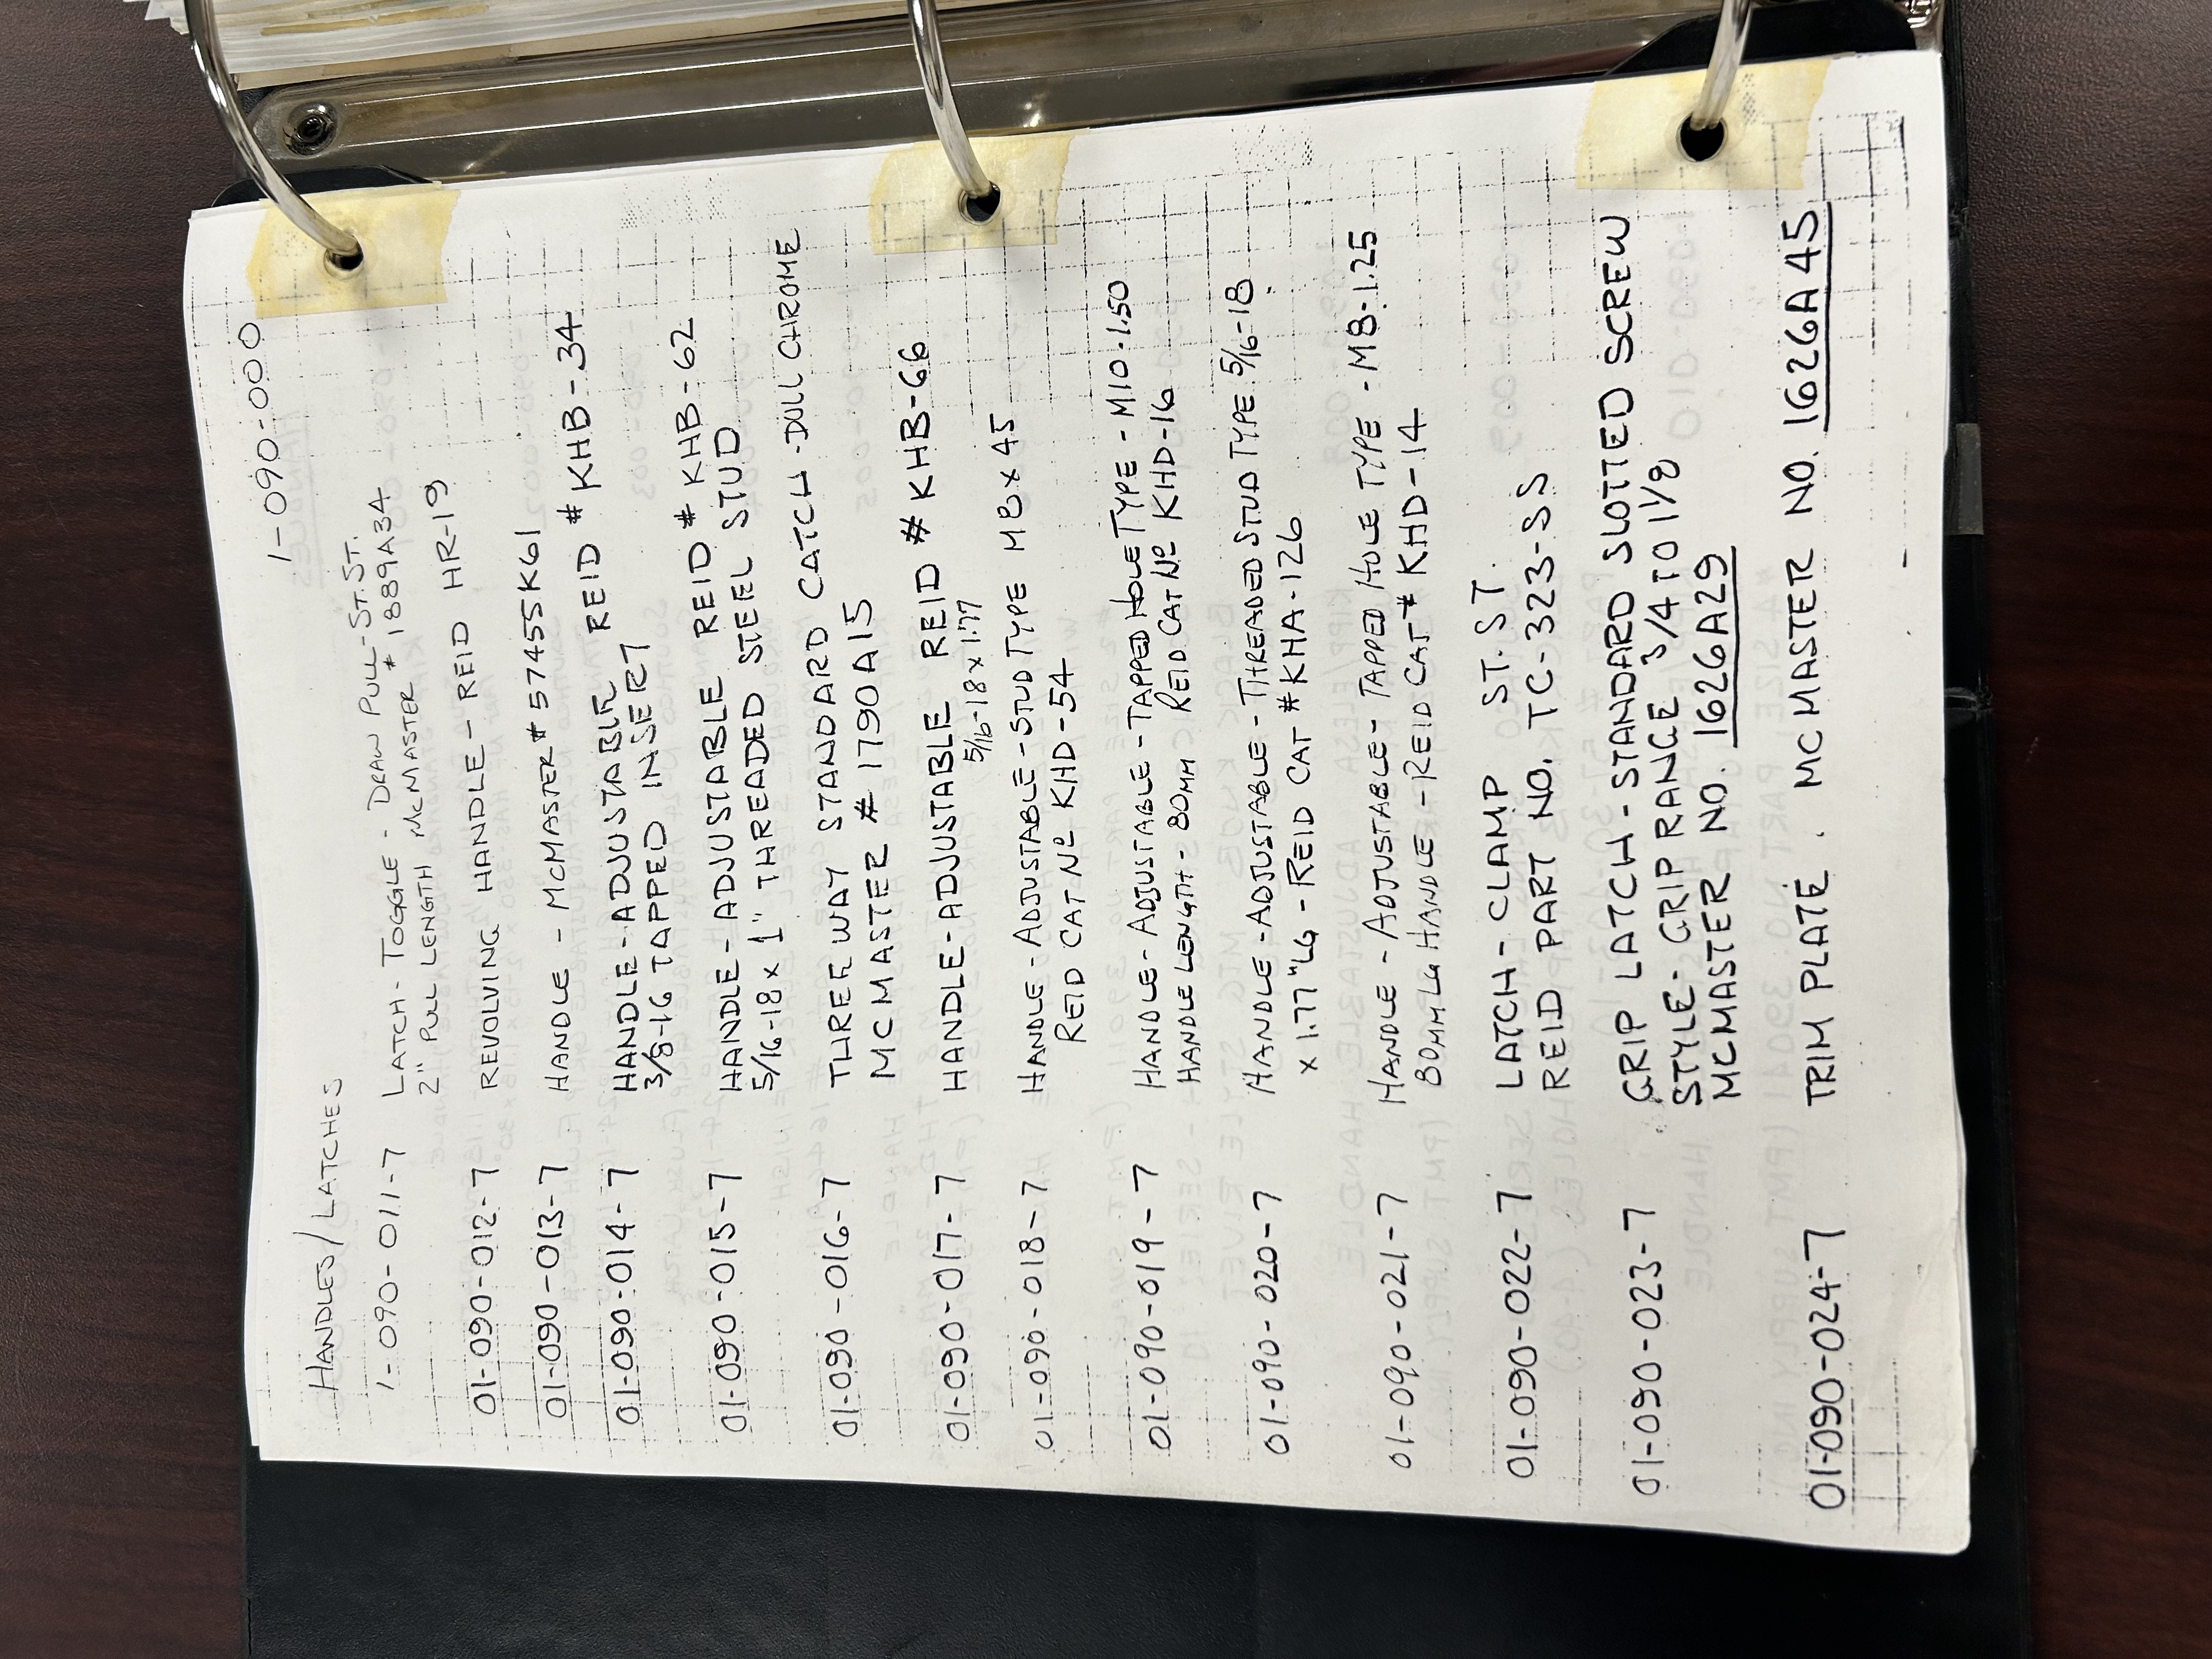 1-090-000
HANDLES/LATCHES
1-090-011-7 LATCH-TOGGLE - DRAW PULL-ST.ST.
2" PULL LENGTH MCMASTER # 1889A34
01-090-012-7 REVOLVING HANDLE - REID HR-19
01-090-013-7 HANDLE - MCMASTER # 57455K61
01-090-014-7 HANDLE-ADJUSTABLE REID # KHB-34
3/8-16 TAPPED INSERT
01-090-015-7 HANDLE-ADJUSTABLE REID # KHB-62
5/16-18 x 1" THREADED STEEL STUD
01-090-016-7 THREE WAY STANDARD CATCH-DULL CHROME
MCMASTER # 1790A15
01-090-017-7 HANDLE-ADJUSTABLE REID # KHB-66
5/16-18 x 1.77
01-090-018-7 HANDLE-ADJUSTABLE-STUD TYPE M8x45
REID CAT Nº KHD-54
01-090-019-7 HANDLE-ADJUSTABLE-TAPPED HOLE TYPE - M10-1.50
HANDLE LENGTH - 80MM REID CAT Nº KHD-16
01-090-020-7 HANDLE-ADJUSTABLE-THREADED STUD TYPE 5/16-18
x 1.77" LG - REID CAT # KHA-126
01-090-021-7 HANDLE-ADJUSTABLE-TAPPED HOLE TYPE - M8-1.25
80MM LG HANDLE - REID CAT # KHD-14
01-090-022-7 LATCH-CLAMP ST.ST.
REID PART NO. TC-323-SS
01-090-023-7 GRIP LATCH-STANDARD SLOTTED SCREW
STYLE-GRIP RANGE 3/4 TO 1 1/8
MCMASTER NO. 1626A29
01-090-024-7 TRIM PLATE. MCMASTER NO. 1626A45